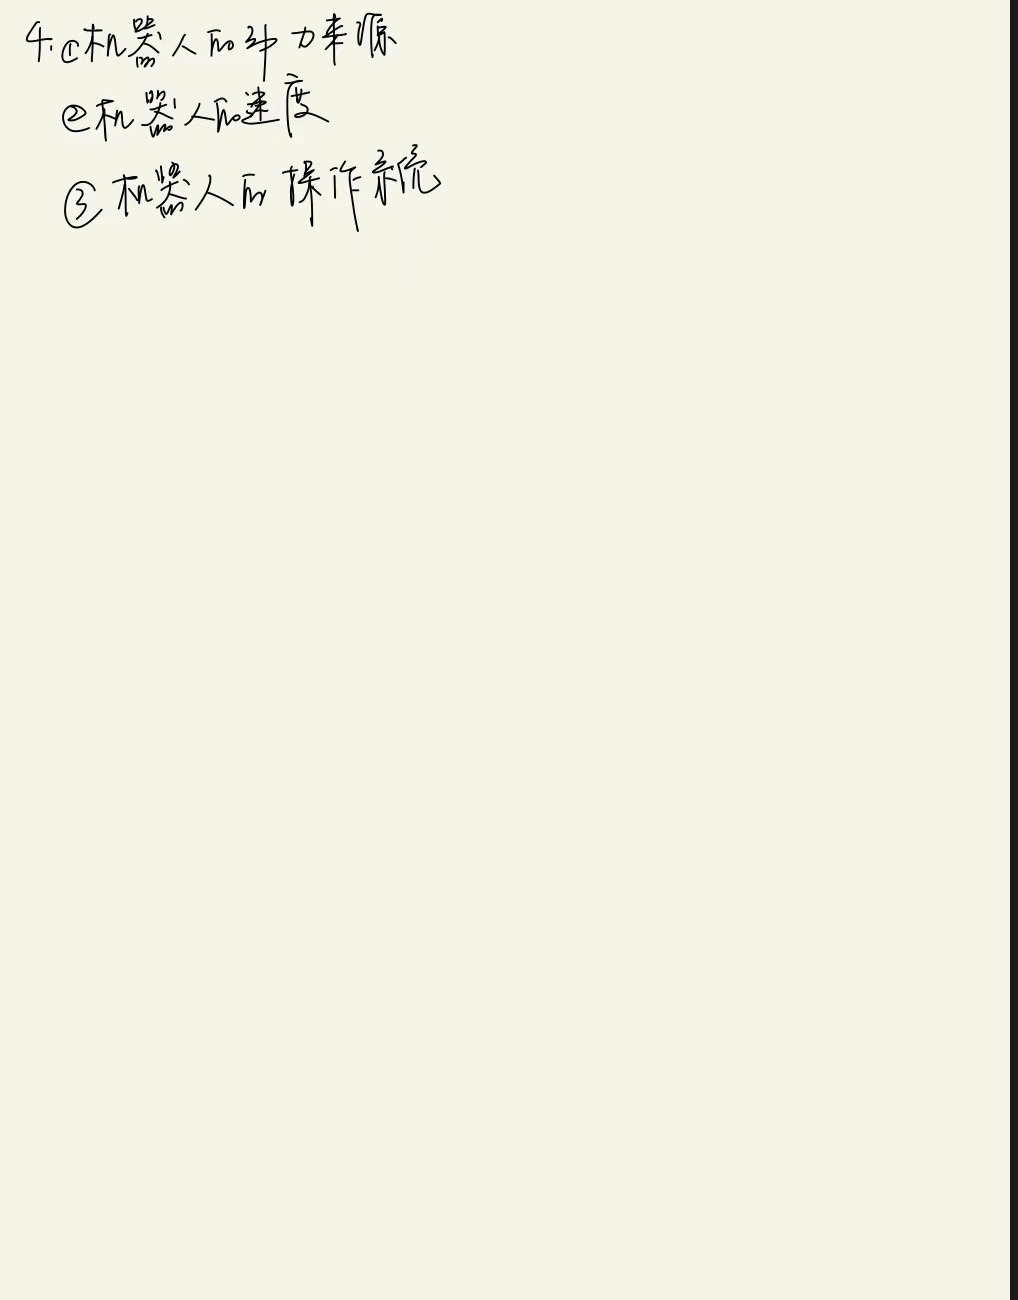 4.①机器人的动力来源
②机器人的速度
③机器人的操作系统